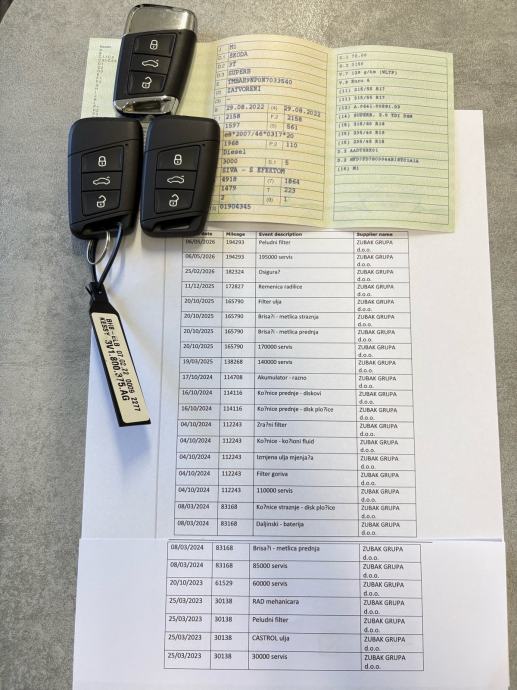 J M1
D.1 ŠKODA
D.2 3T
D.3 SUPERB
E TMBAR9NP0N7033540
ZATVORENI
B 29.08.2022 (4) 29.08.2022
2158 F.2 2158
1597 (5) 561
e8*2007/46*0317*20
1968 P.2 110
Diesel
3000 S.1 5
SIVA - S EFEKTOM
4918 (7) 1864
1479 T 223
2 (8) 1
01904345
V.7 129 g/km (WLTP)
V.9 Euro 6
(11) 215/55 R17
(11) 215/55 R17
(14) SUPERB, 2.0 TDI DSG
(15) 215/60 R16
(16) M1
date Mileage Event description Supplier name
06/05/2026 194293 Peludni filter ZUBAK GRUPA d.o.o.
06/05/2026 194293 195000 servis ZUBAK GRUPA d.o.o.
25/02/2026 182324 Osigura? ZUBAK GRUPA d.o.o.
11/12/2025 172827 Remenica radilice ZUBAK GRUPA d.o.o.
20/10/2025 165790 Filter ulja ZUBAK GRUPA d.o.o.
20/10/2025 165790 Brisa?i - metlica straznja ZUBAK GRUPA d.o.o.
20/10/2025 165790 Brisa?i - metlica prednja ZUBAK GRUPA d.o.o.
20/10/2025 165790 170000 servis ZUBAK GRUPA d.o.o.
19/03/2025 138268 140000 servis ZUBAK GRUPA d.o.o.
17/10/2024 114708 Akumulator - razno ZUBAK GRUPA d.o.o.
16/10/2024 114116 Ko?nice prednje - diskovi ZUBAK GRUPA d.o.o.
16/10/2024 114116 Ko?nice prednje - disk plo?ice ZUBAK GRUPA d.o.o.
04/10/2024 112243 Zra?ni filter ZUBAK GRUPA d.o.o.
04/10/2024 112243 Ko?nice - ko?ioni fluid ZUBAK GRUPA d.o.o.
04/10/2024 112243 Izmjena ulja mjenja?a ZUBAK GRUPA d.o.o.
04/10/2024 112243 Filter goriva ZUBAK GRUPA d.o.o.
04/10/2024 112243 110000 servis ZUBAK GRUPA d.o.o.
08/03/2024 83168 Ko?nice straznje - disk plo?ice ZUBAK GRUPA d.o.o.
08/03/2024 83168 Daljinski - baterija ZUBAK GRUPA d.o.o.
08/03/2024 83168 Brisa?i - metlica prednja ZUBAK GRUPA d.o.o.
08/03/2024 83168 85000 servis ZUBAK GRUPA d.o.o.
20/10/2023 61529 60000 servis ZUBAK GRUPA d.o.o.
25/03/2023 30138 RAD mehanicara ZUBAK GRUPA d.o.o.
25/03/2023 30138 Peludni filter ZUBAK GRUPA d.o.o.
25/03/2023 30138 CASTROL ulja ZUBAK GRUPA d.o.o.
25/03/2023 30138 30000 servis ZUBAK GRUPA d.o.o.
KESSY 3V1.800.375.AG